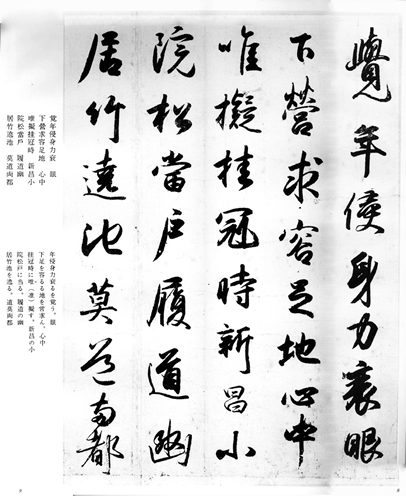 覺年侵身力衰眼
下營求容足地心中
唯擬挂冠時新昌小
院松當戶履道幽
居竹遶池莫道両都
覚年侵身力衰 眼
下營求容足地 心中
唯擬挂冠時 新昌小
院松當戶 履道幽
居竹遶池 莫道両都
年侵身力衰るを覚う。眼
下足を容るる地を営求ん、心中
挂冠時に唯(惟)擬す。新昌の小
院松戸に当る。履道の幽
居竹池を遶る。道莫両都